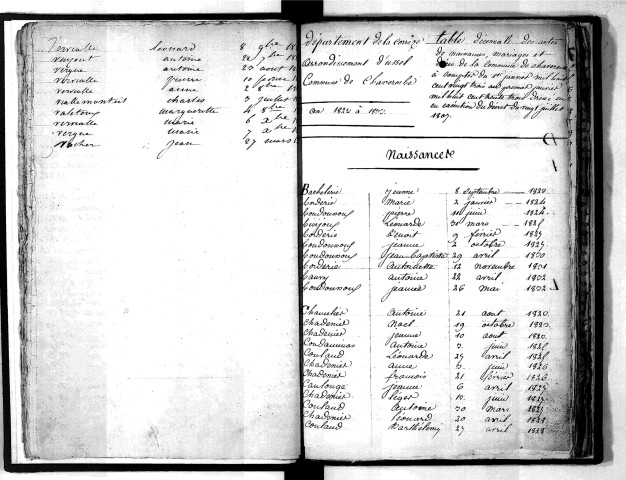 Vervialle léonard 8 9bre 18
vergont antoine 22 7bre 18
vergne antoine 23 aout 18
vervialle pierre 10
vervialle anne 2 8bre 18
viallemonteil charles 3 juillet 1
valetoux marguerite 4 8bre
vervialle marie 6
vergne marie 7
vacher jean 27 mars
département de la corrèze
arrondissement d'ussel
Commune de Chaveroche
an 1820 à
table décennale des actes
de naissances, mariages et
de la commune de chaveroche
à compter du 1er janvier mil huit
cent vingt trois au premier janvier
mil huit cent trente trois dressée en
en exécution du décret du vingt juillet
1807.
Naissances
Bachelerie jeanne 8 septembre 1820
Conderie Marie 2 janvier 1824
Coudounoux pierre 14 juin 1824
Léonarde 31 mars 1825
Conderie Benoit 9 février 1827
Coudounoux jeanne 2 octobre 1827
Coudounoux jean Baptiste 29 avril 1830
Conderie Antoinette 12 novembre 1831
antoine 22 avril 1832
Coudounoux jeanne 26 mai 1832
Chaumeil Antoine 21 aout 1820
Chadenier Noel 19 octobre 1823
Chadenier jeanne 10 aout 1820
Condaminas Antoine 7 juin 1825
Coulaud Léonarde 27 avril 1825
Chadenier anne 3 juin 1826
Chadenier francois 21 février 1826
jeanne 6 avril 1827
Chadenier léger 10 juin 1827
Coulaud Antoine 30 mars 1827
Chadenier léonard 20 avril 1828
Coulaud Barthélemy 27 avril 1828